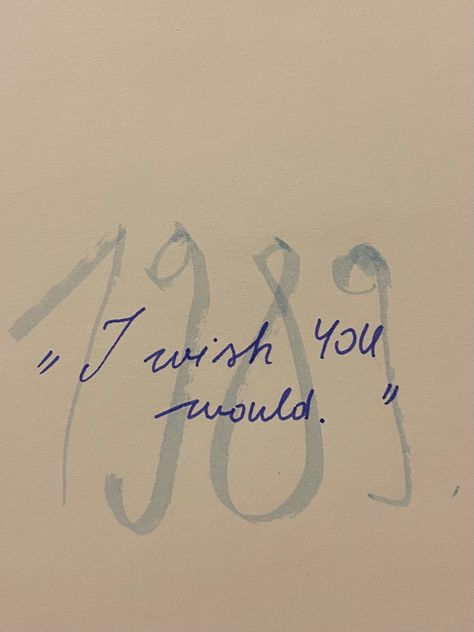 1989
„ I wish YOU
would. "